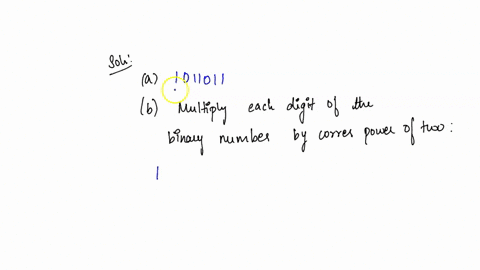 Soln:
(a) 1011011
(b) Multiply each digit of the
binary number by corres power of two:
1